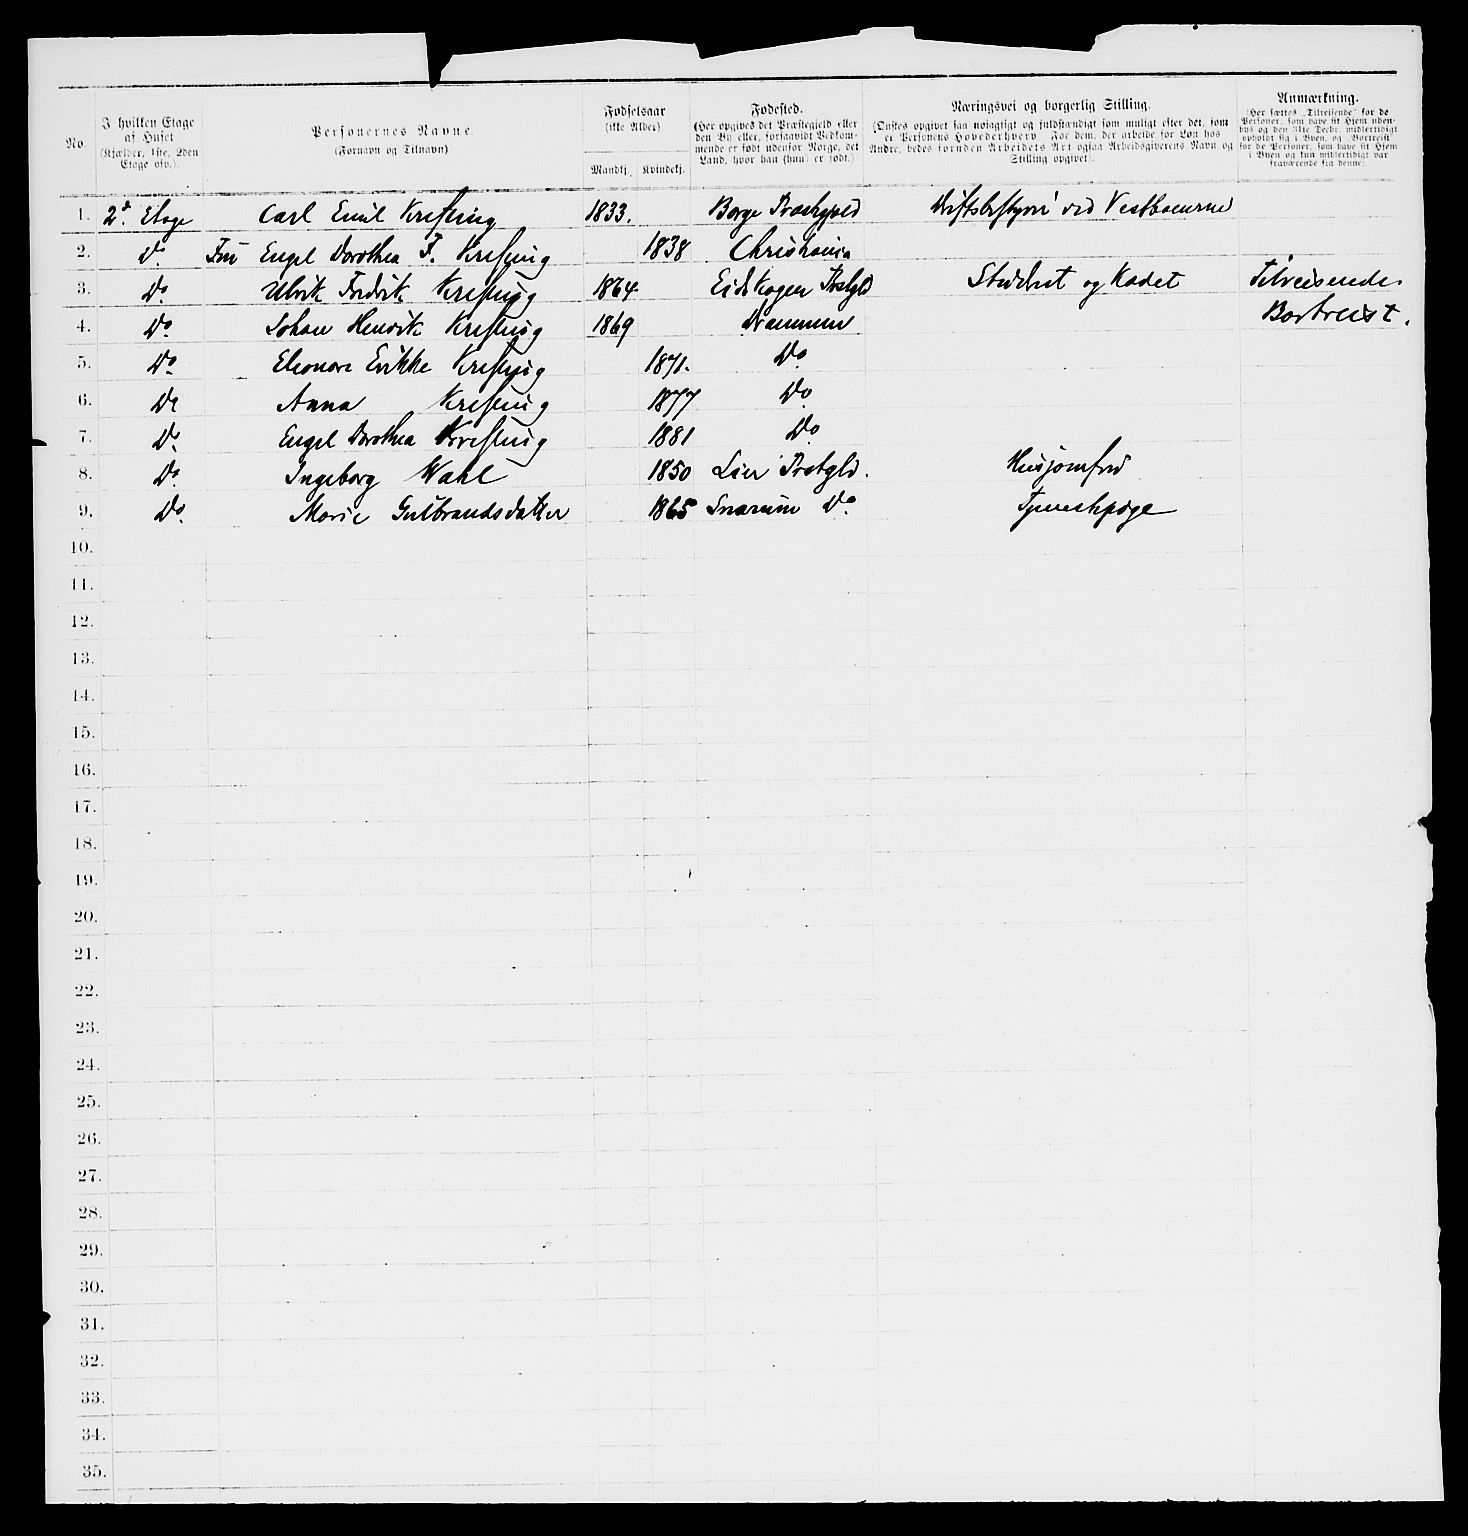 No.
I hvilken Etage af Huset (Kjælder, 1ste, 2den Etage osv.).
Personernes Navne. (Fornavn og Tilnavn)
Fødselsaar (ikke Alder) Mandkj. Kvindekj.
Fødested. (Her opgives det Præstegjeld eller den By eller, forsaavidt Vedkommende er født udenfor Norge, det Land, hvor han (hun) er født.)
Næringsvei og borgerlig Stilling. (Ønskes opgivet saa nøiagtigt og fuldstændigt som muligt efter det, som er Personens Hovederhverv. For dem, der arbeide for Løn hos Andre, bedes foruden Arbeidets Art ogsaa Arbeidsgiverens Navn og Stilling opgivet).
Anmærkning. (Her sættes „Tilreisende" for de Personer, som have sit Hjem udenbys og den 31te Decbr. midlertidigt opholdt sig i Byen, og „Bortreist" for de Personer, som have sit Hjem i Byen og kun midlertidigt var fraværende fra denne)
1. 2d Etage Carl Emil Krefting 1833. Borge Præstegjeld Driftsbestyrer ved Vestbanerne
2. Do Fru Engel Dorothea F. Krefting 1838 Christiania
3. Do Ulrik Fredrik Krefting 1864 Eidskogen Prstgld Student og Kadet Tilreisende
4. Do Johan Henrik Krefting 1869 Drammen Bortreist.
5. Do Eleonore Erikke Krefting 1871. Do
6. Do Anna Krefting 1877 Do
7. Do Engel Dorothea Krefting 1881 Do
8. Do Ingeborg Wahl 1850 Lier Prstgld. Husjomfru
9. Do Marie Gulbrandsdatter 1865 Snarum Do. Tjenestepige
10.
11.
12.
13.
14.
15.
16.
17.
18.
19.
20.
21.
22.
23.
24.
25.
26.
27.
28.
29.
30.
31.
32.
33.
34.
35.